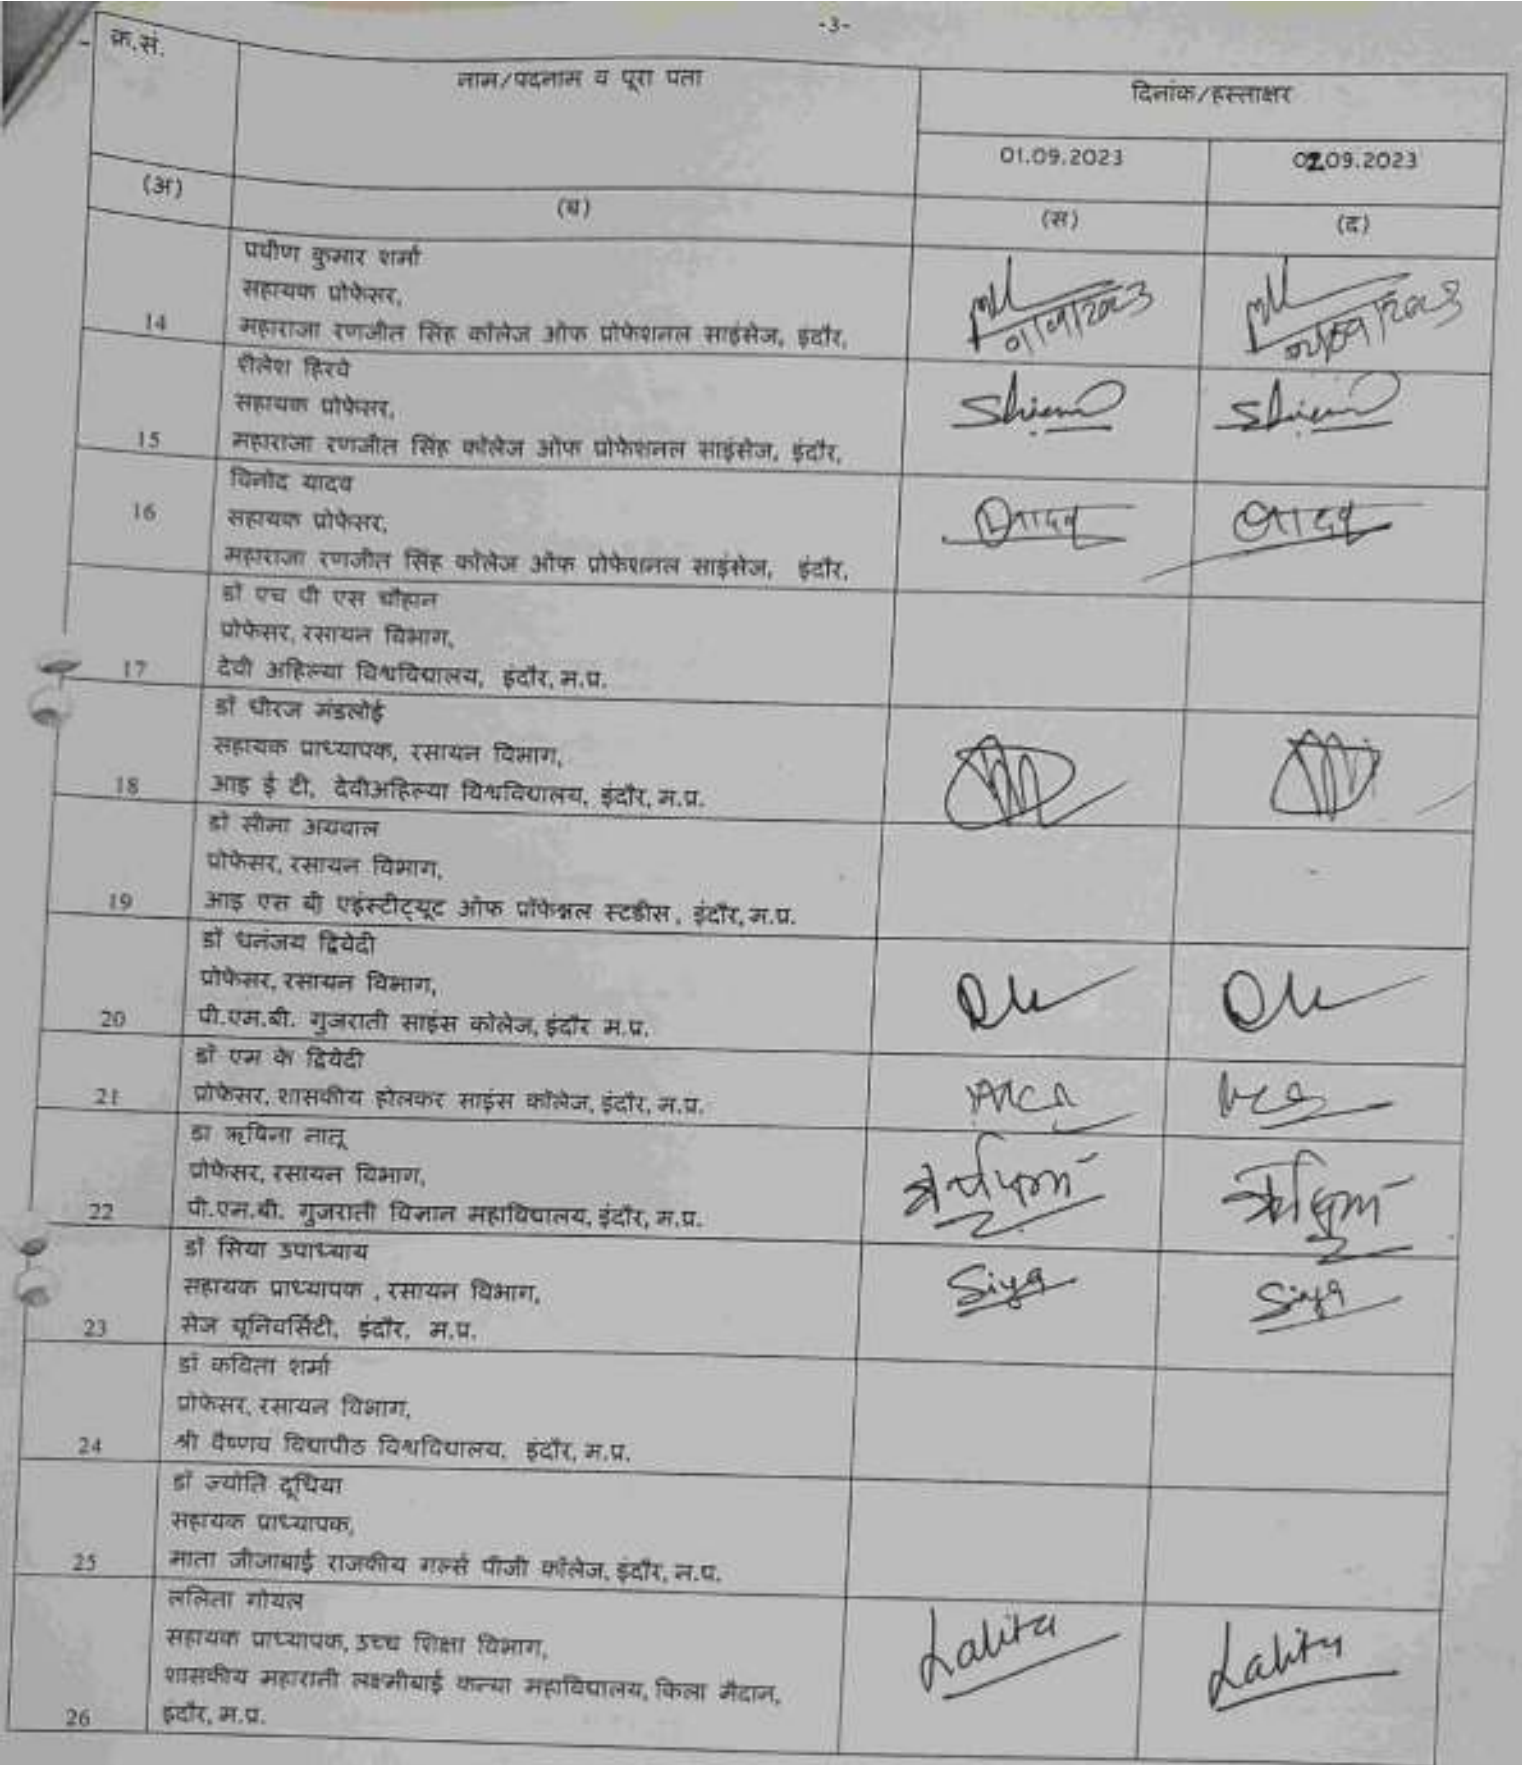 -3-
क्र.सं.
नाम/पदनाम व पूरा पता
दिनांक/हस्ताक्षर
01.09.2023
02.09.2023
(अ)
(ब)
(स)
(द)
प्रवीण कुमार शर्मा
सहायक प्रोफेसर,
14
महाराजा रणजीत सिंह कॉलेज ऑफ प्रोफेशनल साइंसेज, इंदौर,
शैलेश हिरवे
सहायक प्रोफेसर,
15
महाराजा रणजीत सिंह कॉलेज ऑफ प्रोफेशनल साइंसेज, इंदौर,
विनोद यादव
16
सहायक प्रोफेसर,
महाराजा रणजीत सिंह कॉलेज ऑफ प्रोफेशनल साइंसेज, इंदौर,
यादव
यादव
डॉ एच पी एस चौहान
प्रोफेसर, रसायन विभाग,
17
देवी अहिल्या विश्वविद्यालय, इंदौर, म.प्र.
डॉ धीरज मंडलोई
सहायक प्राध्यापक, रसायन विभाग,
18
आइ ई टी, देवीअहिल्या विश्वविद्यालय, इंदौर, म.प्र.
डॉ सीमा अग्रवाल
प्रोफेसर, रसायन विभाग,
19
आइ एस बी एइंस्टीट्यूट ऑफ प्रॉफेश्नल स्टडीस, इंदौर, म.प्र.
डॉ धनंजय द्विवेदी
प्रोफेसर, रसायन विभाग,
20
पी.एम.बी. गुजराती साइंस कॉलेज, इंदौर म.प्र.
डॉ एम के द्विवेदी
21
प्रोफेसर, शासकीय होलकर साइंस कॉलेज, इंदौर, म.प्र.
डॉ ऋषिना नातू
प्रोफेसर, रसायन विभाग,
22
पी.एम.बी. गुजराती विज्ञान महाविद्यालय, इंदौर, म.प्र.
डॉ सिया उपाध्याय
सहायक प्राध्यापक , रसायन विभाग,
23
सेज यूनिवर्सिटी, इंदौर, म.प्र.
Siya
Siya
डॉ कविता शर्मा
प्रोफेसर, रसायन विभाग,
24
श्री वैष्णव विद्यापीठ विश्वविद्यालय, इंदौर, म.प्र.
डॉ ज्योति दूधिया
सहायक प्राध्यापक,
25
माता जीजाबाई राजकीय गर्ल्स पीजी कॉलेज, इंदौर, म.प्र.
ललिता गोयल
सहायक प्राध्यापक, उच्च शिक्षा विभाग,
शासकीय महारानी लक्ष्मीबाई कन्या महाविद्यालय, किला मैदान,
26
इंदौर, म.प्र.
Lalita
Lalita